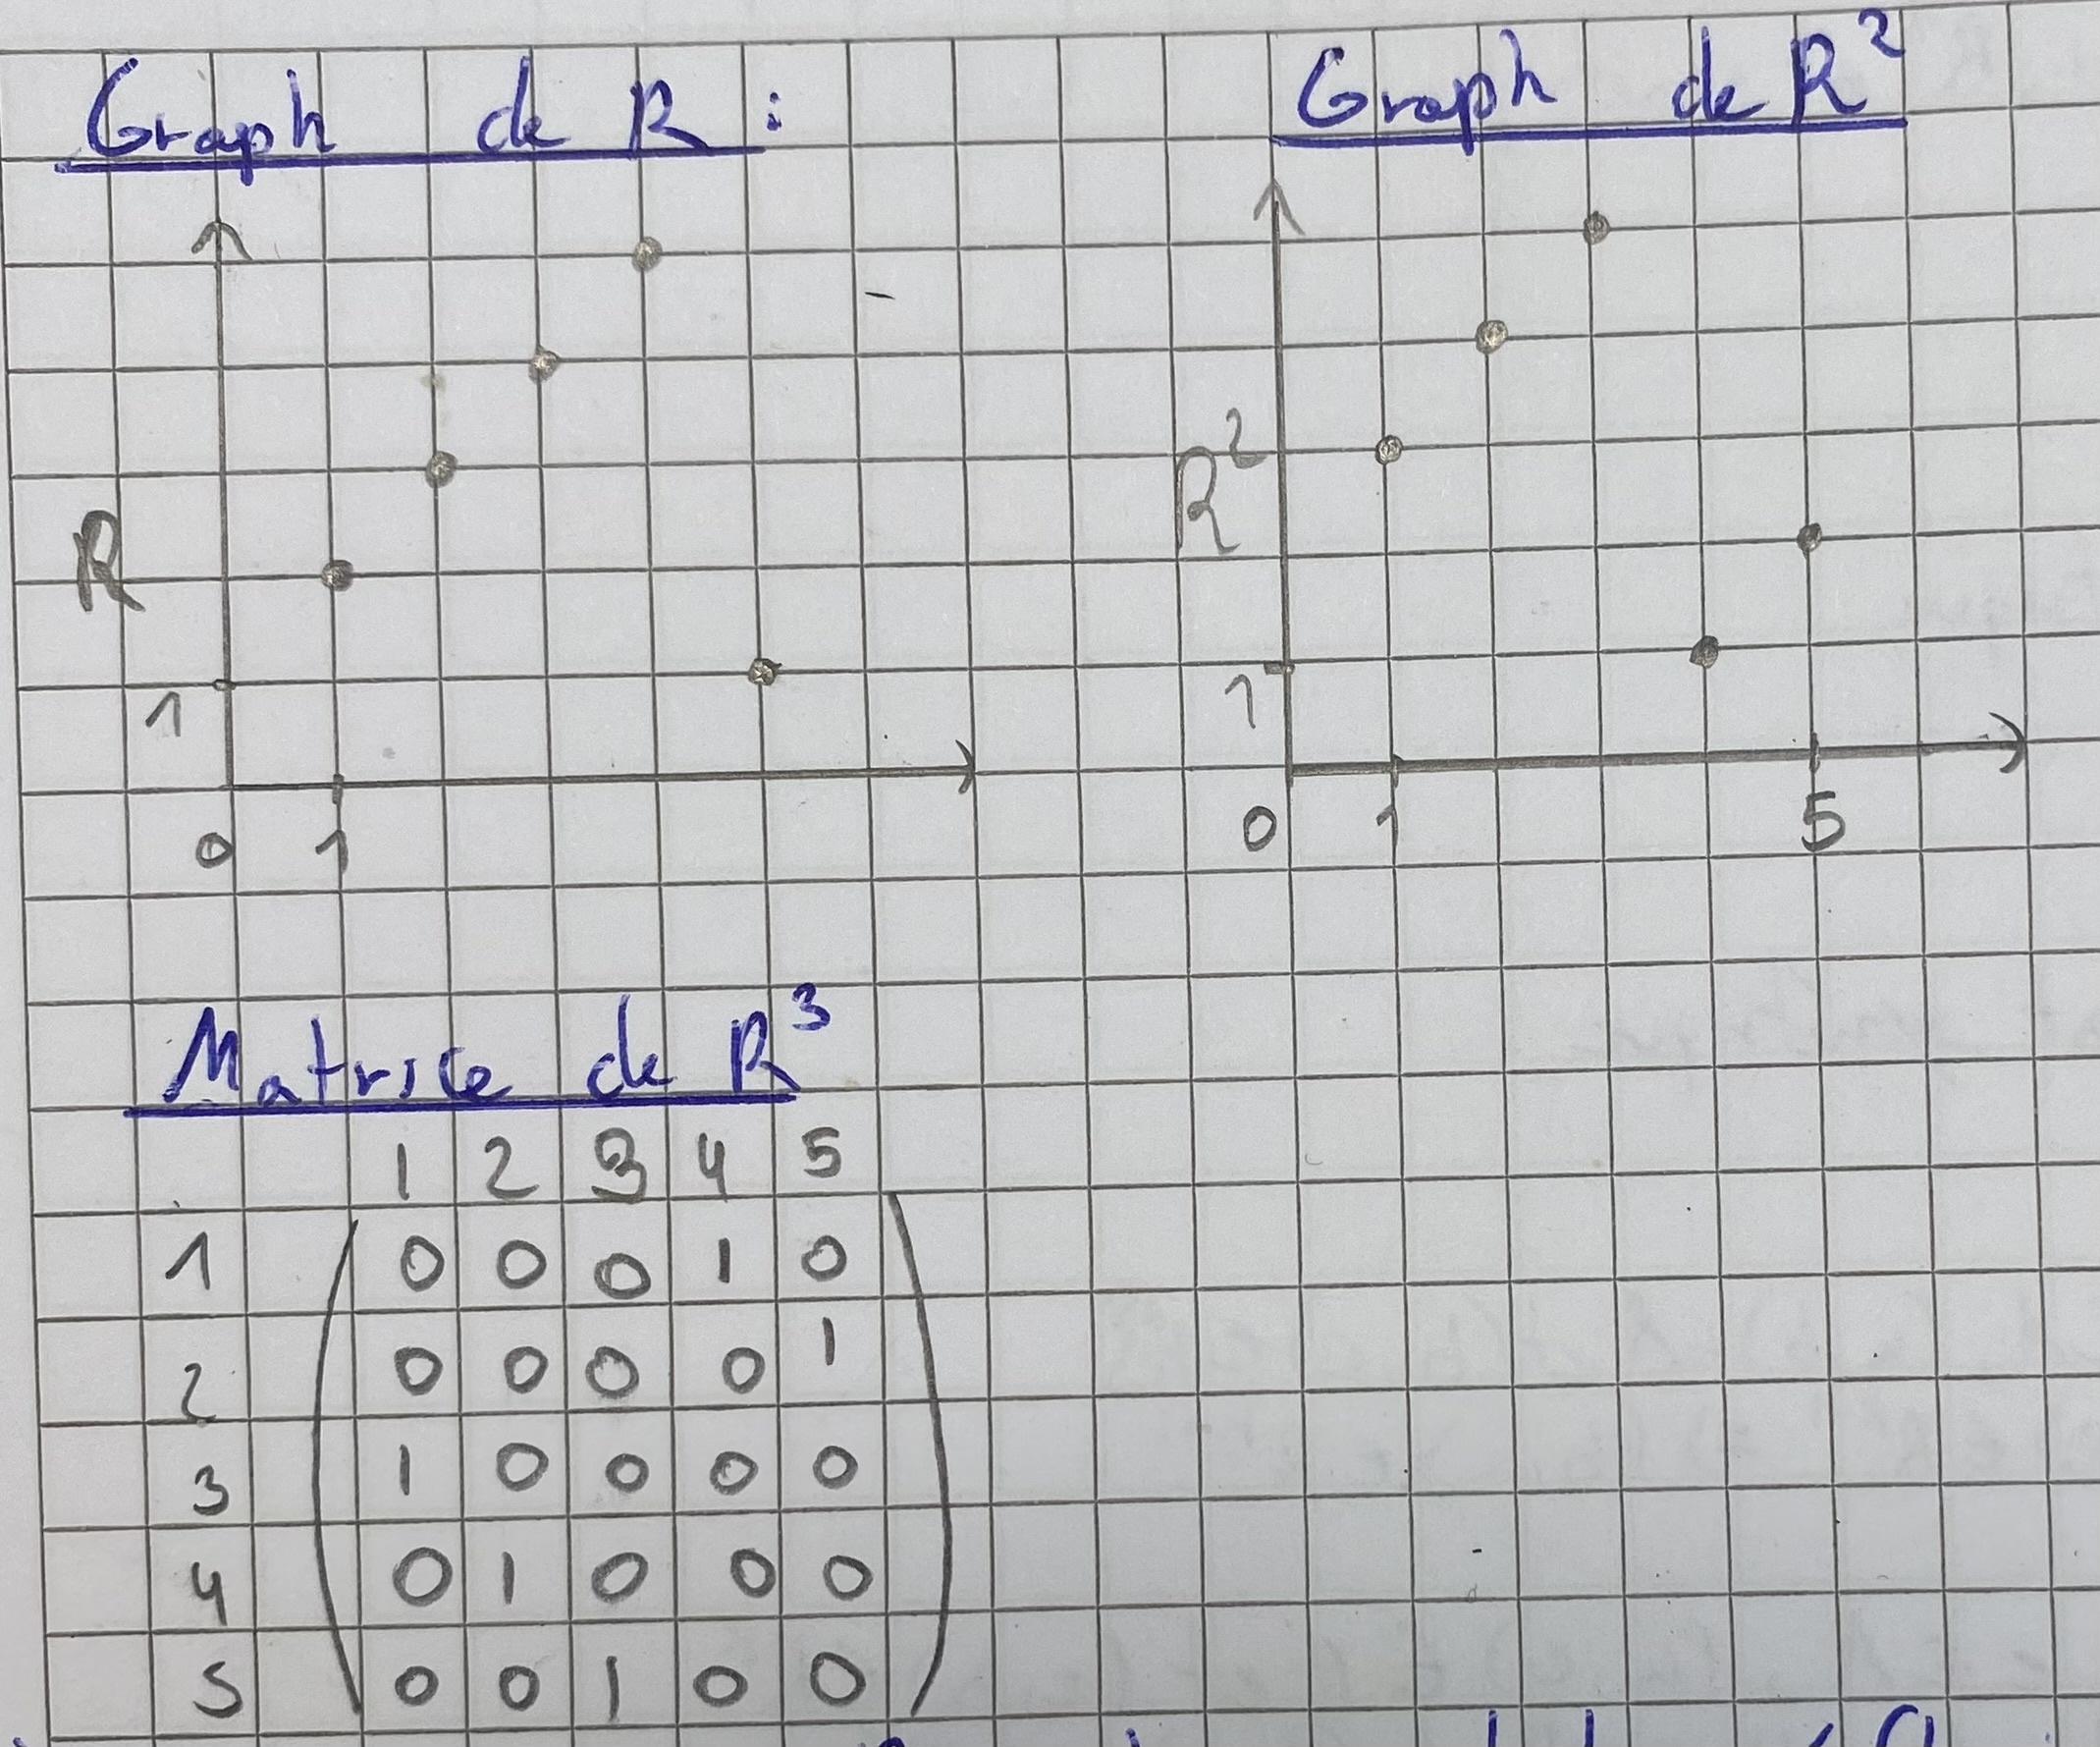 Graph de R :
Graph de R²
R
1
0 1
R²
1
0 1 5
Matrice de R³
1 2 3 4 5
1 0 0 0 1 0
2 0 0 0 0 1
3 1 0 0 0 0
4 0 1 0 0 0
5 0 0 1 0 0